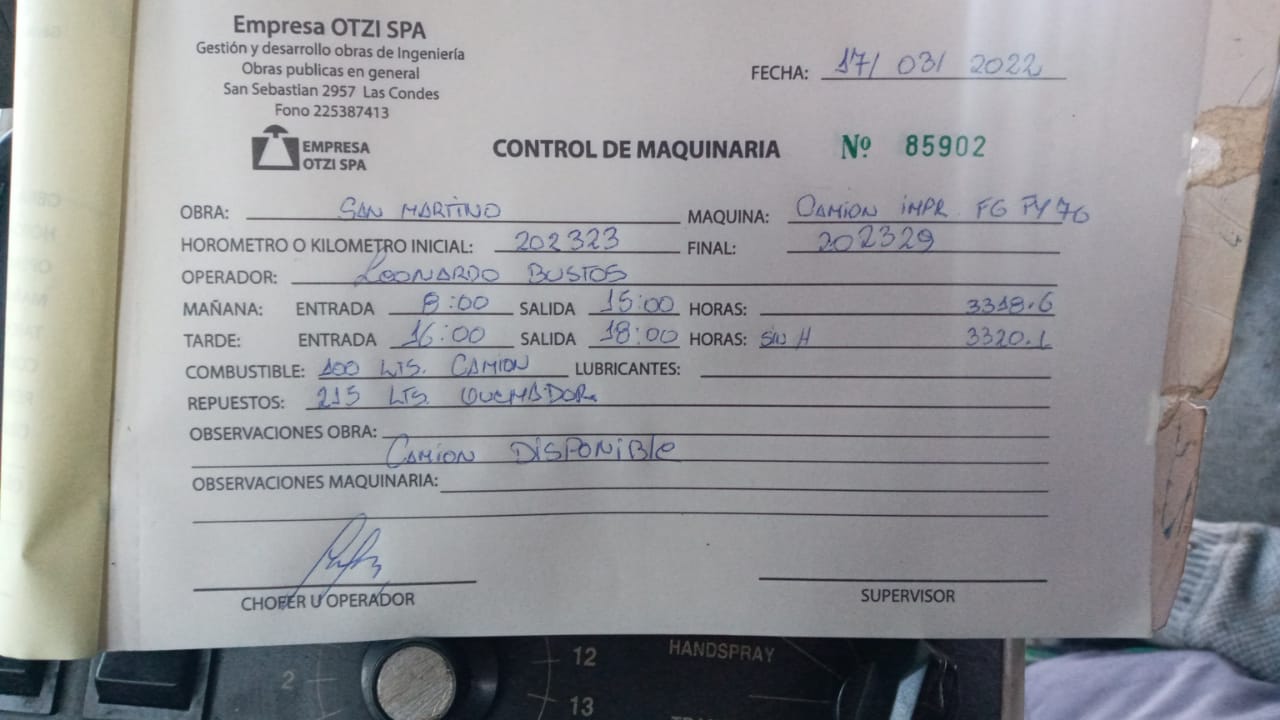 Empresa OTZI SPA
Gestión y desarrollo obras de Ingeniería
Obras publicas en general
San Sebastian 2957 Las Condes
Fono 225387413
FECHA: 17/ 03/ 2022
EMPRESA
OTZI SPA
CONTROL DE MAQUINARIA Nº 85902
OBRA: SAN MARTINO MAQUINA: CAMION IMPR. FG PY 76
HOROMETRO O KILOMETRO INICIAL: 202323 FINAL: 202329
OPERADOR: LEONARDO BUSTOS
MAÑANA: ENTRADA 8:00 SALIDA 15:00 HORAS: 3318.6
TARDE: ENTRADA 16:00 SALIDA 18:00 HORAS: SIN H 3320.1
COMBUSTIBLE: 100 LTS. CAMION LUBRICANTES:
REPUESTOS: 215 LTS. QUEMADOR.
OBSERVACIONES OBRA:
CAMION DISPONIBLE
OBSERVACIONES MAQUINARIA:
CHOFER U OPERADOR
SUPERVISOR
2
12
13
HANDSPRAY